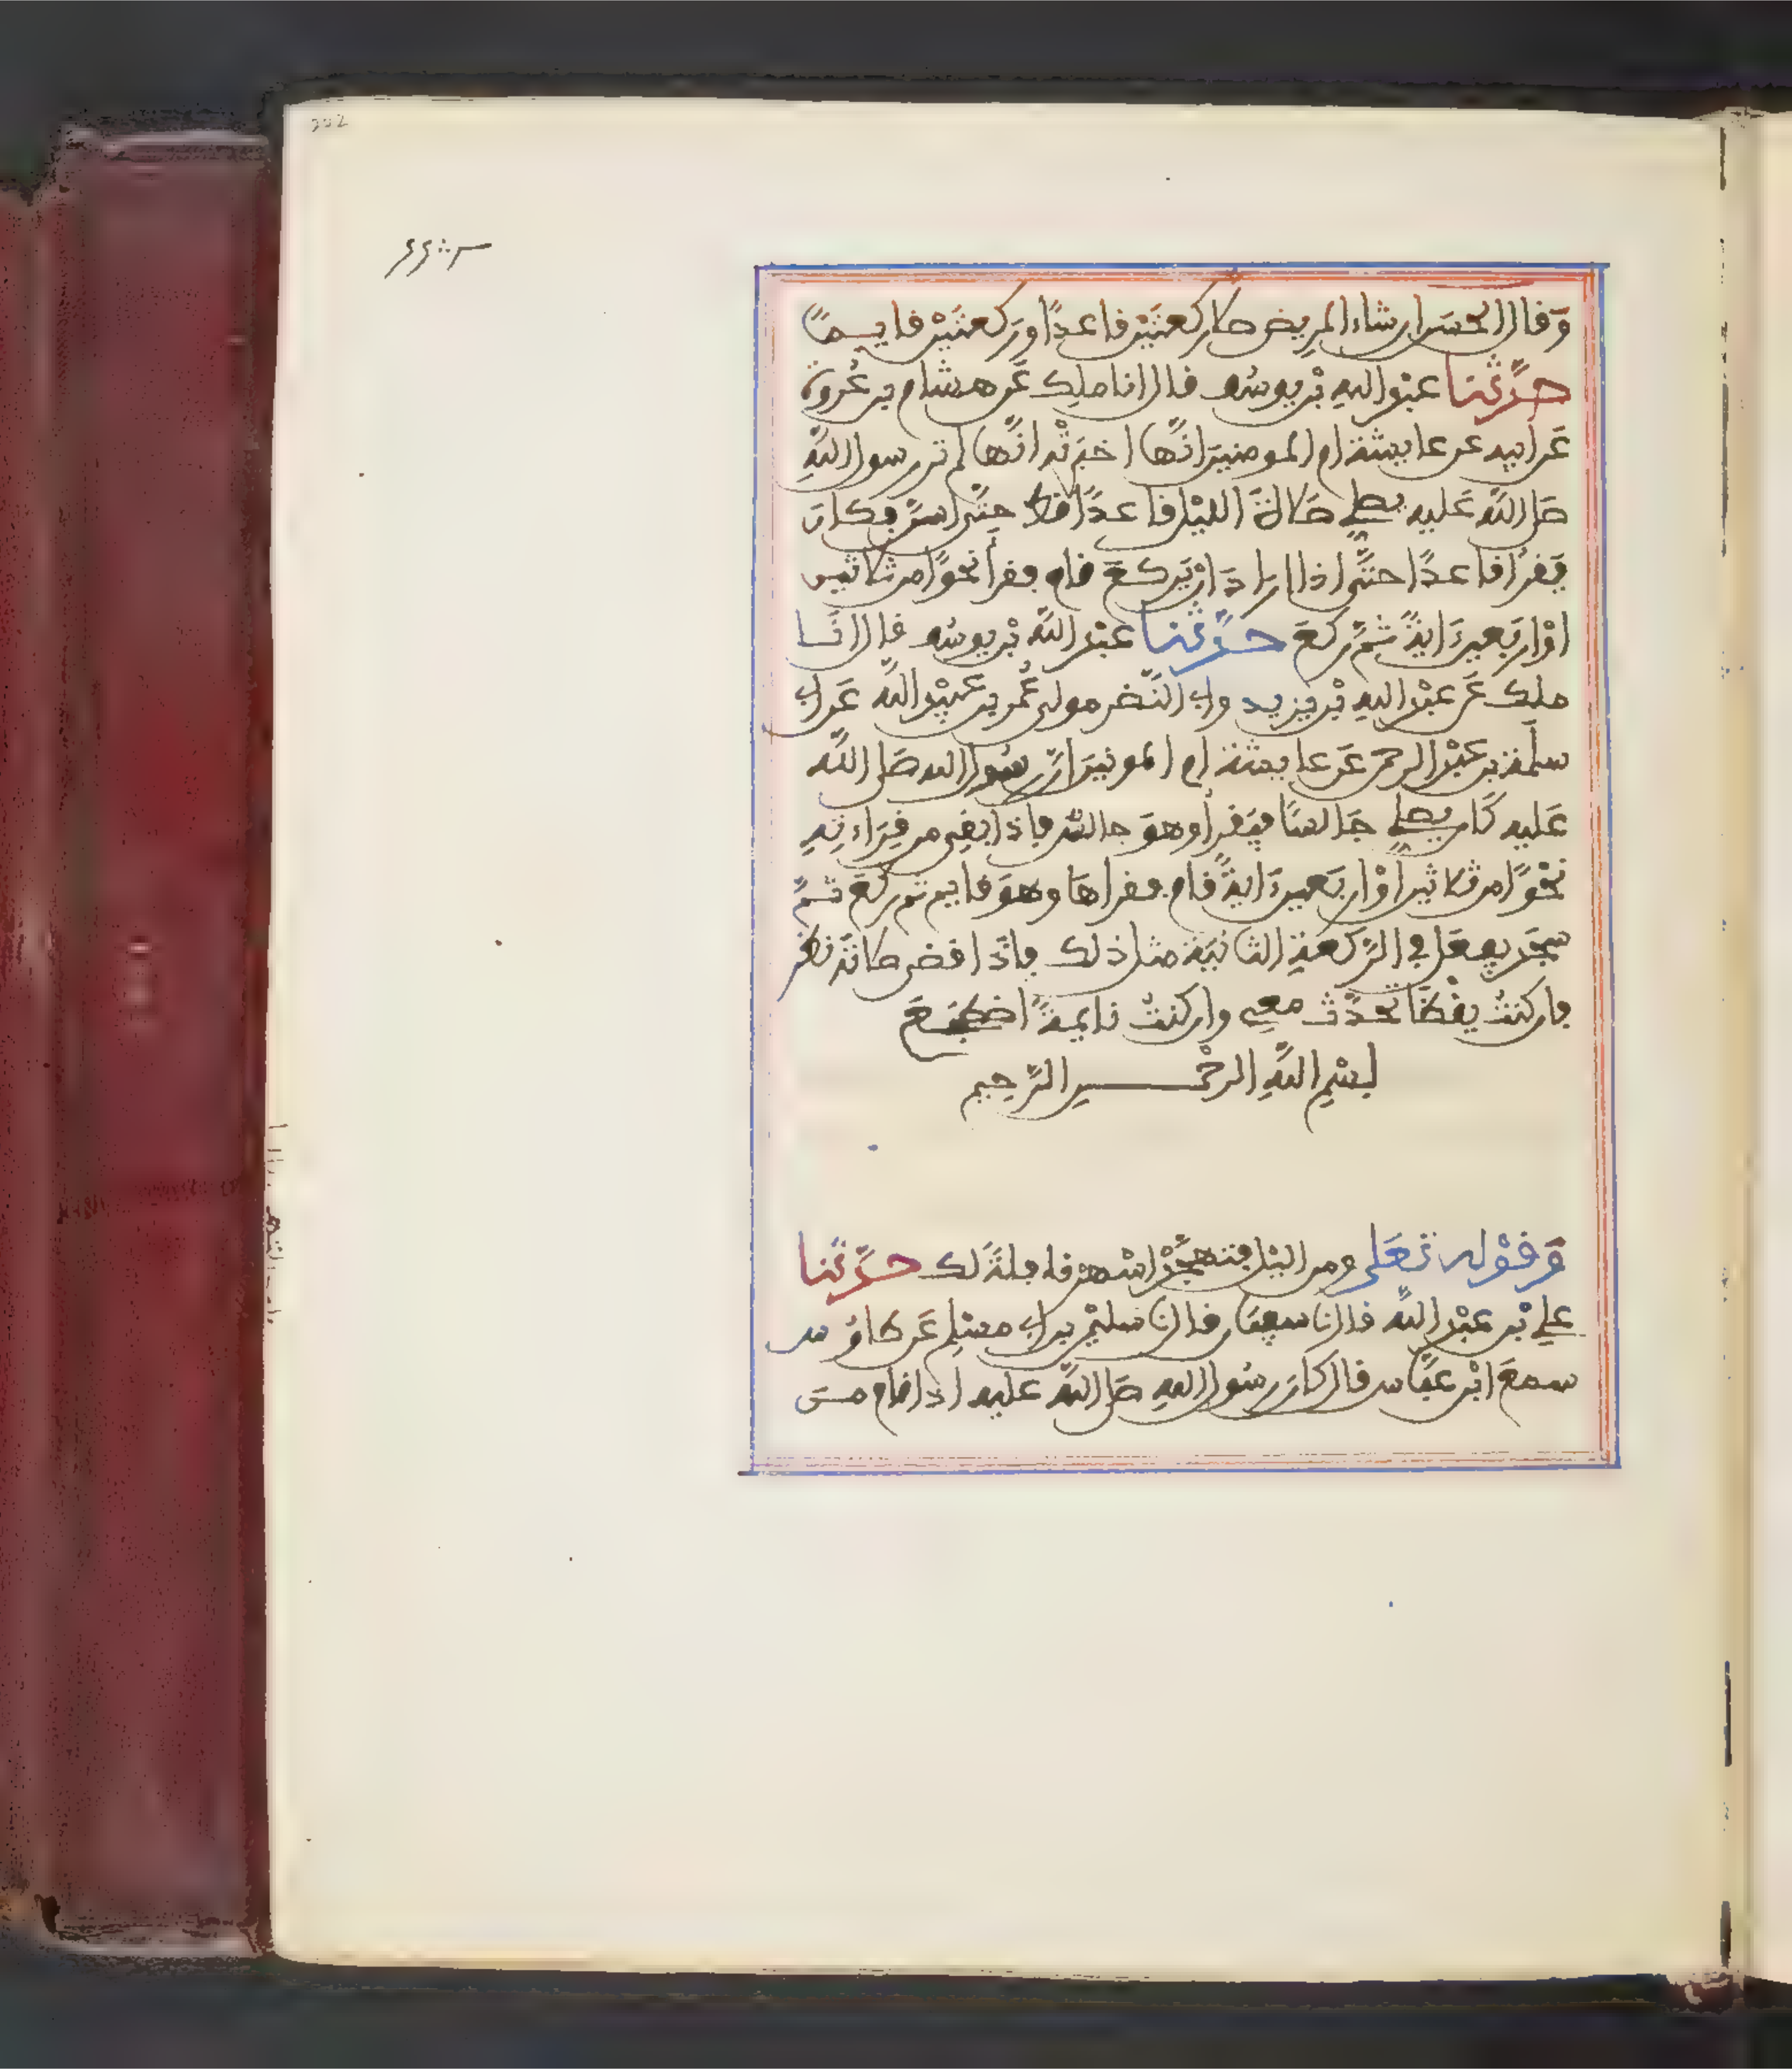 وَقال الحسَن ان شاء المريض صلى ركعتَيْن قاعدًا وركعتَيْن قايمًا
حدَّثنا عبْد اللهِ بْن يوسُف قال انا ملك عَن هشام بن عُروة
عَن ابيه عن عايشة ام المومنين انَّها اخبرَتْه انَّها لم تر رسول اللَّهِ
صَلى اللَّه عَليه يصلي صَلاةَ الليْل قاعدًا قط حتَّى اسَنَّ فكان
يَقرأ قاعدًا حتَّى اذا ارادَ انْ يَركعَ قام فقرأ نحوًا من ثلاثين
اوْ اربَعين ءَايةً ثمَّ ركعَ حدَّثنا عبْد اللَّه بْن يوسُف قال انَا
ملك عَن عبْد اللهِ بْن يزيد وابي النَّضر مولى عُمر بن عبَيْد اللَّه عَن ابي
سلَمة بن عَبْد الرحمن عَن عايشة ام المومنين انَّ رسُول الله صَلى اللَّه
عَليه كَان يصلي جَالسًا فيَقرأ وهوَ جالسٌ فاذا بَقي من قِرَاءتِهِ
نحْوًا من ثلاثين أوْ اربَعين ءَايةً قام فقراهَا وهوَ قايم ثم ركعَ ثمَّ
سجَد يفعَل في الرَّكعةِ الثانيَة مثل ذلك فاذَا قضى صلاتَه نظر
فان كنتُ يقْظَا تحدَّث معي وان كنتُ نايمةً اضطجَعَ
بسْمِ اللَّهِ الرحْمـــنِ الرَّحِيم
وَقوْله تعَلى ومن اليْل فتهجَّدْ اسْهر به نافلةَ لك حدَّثنا
علي بْن عبْد اللَّه قال نا سفيَان قال نا سليْمن بن ابي مسْلِم عَن طاوُس
سمعَ ابْن عبَّاس قال كانَ رسُول اللهِ صَلى اللَّه عليه اذا قام منَ